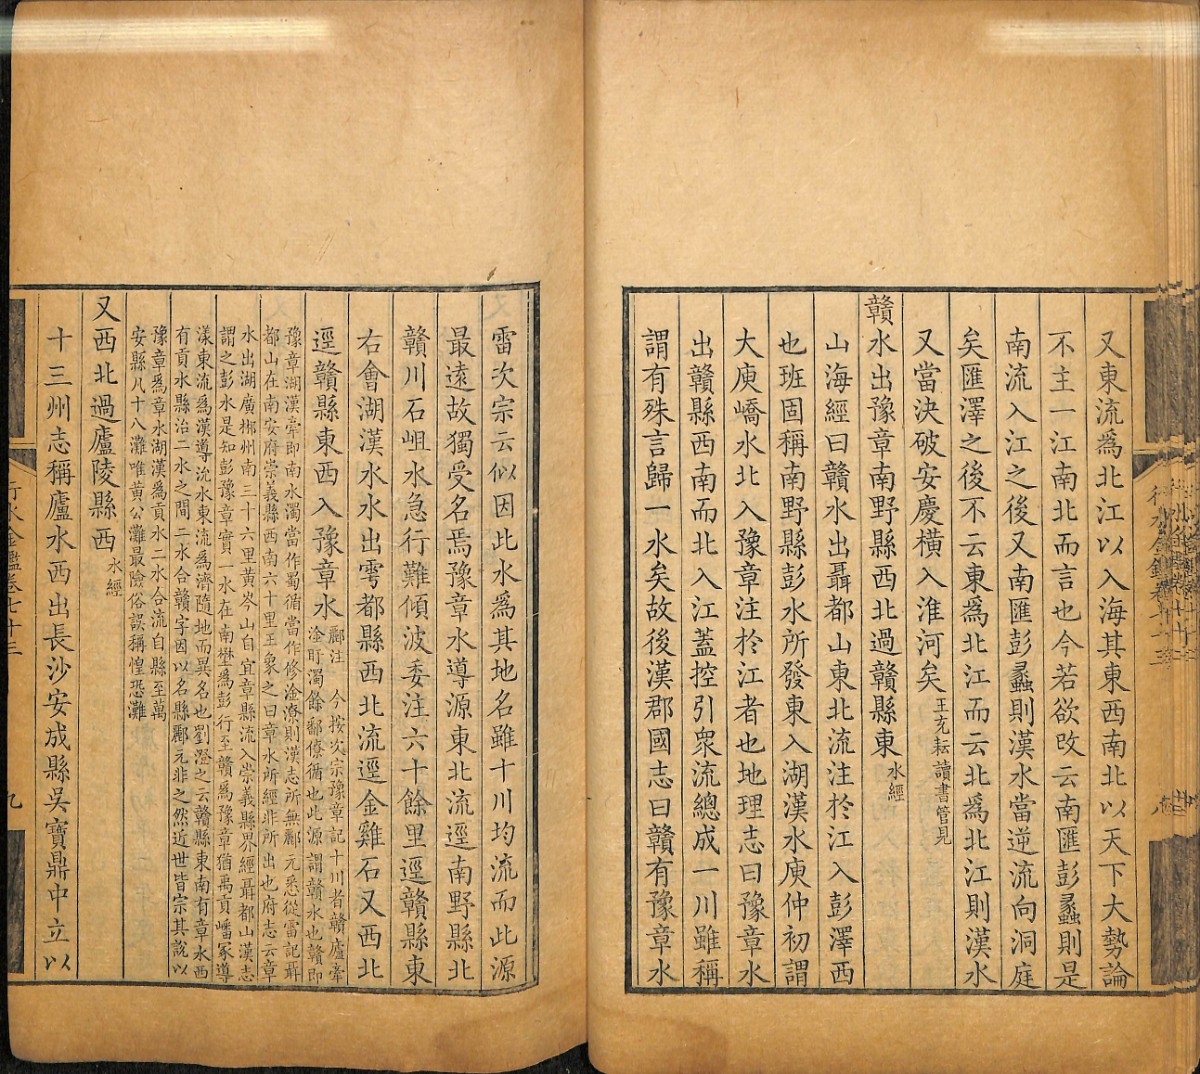 又東流爲北江以入海其東西南北以天下大勢論
不主一江南北而言也今若欲改云南匯彭蠡則是
南流入江之後又南匯彭蠡則漢水當逆流向洞庭
矣匯澤之後不云東爲北江而云北爲北江則漢水
又當決破安慶橫入淮河矣王充耘讀書管見
贛水出豫章南野縣西北過贛縣東水經
山海經曰贛水出聶都山東北流注於江入彭澤西
也班固稱南野縣彭水所發東入湖漢水庾仲初謂
大庾嶠水北入豫章注於江者也地理志曰豫章水
出贛縣西南而北入江蓋控引衆流總成一川雖稱
謂有殊言歸一水矣故後漢郡國志曰贛有豫章水
雷次宗云似因此水爲其地名雖十川均流而此源
最遠故獨受名焉豫章水導源東北流逕南野縣北
贛川石岨水急行難傾波委注六十餘里逕贛縣東
右會湖漢水水出雩都縣西北流逕金雞石又西北
逕贛縣東西入豫章水酈注 今按次宗豫章記十川者贛廬牽
淦盱濁餘鄱僚循也此源謂贛水也贛即
豫章湖漢牽即南水濁當作蜀循當作修淦潦則漢志所無酈元悉從雷記聶
都山在南安府崇義縣西南六十里王象之曰章水所經非所出也府志云章
水出湖廣郴州南三十六里黄岑山自宜章縣流入崇義縣界經聶都山漢志
謂之彭水是知彭豫章實一水在南壄爲彭行至贛爲豫章猶禹貢嶓冢導
漾東流爲漢導沇水東流爲濟隨地而異名也劉澄之云贛縣東南有章水西
有貢水縣治二水之間二水合贛字因以名縣酈元非之然近世皆宗其說以
豫章爲章水湖漢爲貢水二水合流自縣至萬
安縣凡十八灘唯黄公灘最險俗誤稱惶恐灘
又西北過廬陵縣西水經
十三州志稱廬水西出長沙安成縣吳寶鼎中立以
行水金鑑卷七十三
九